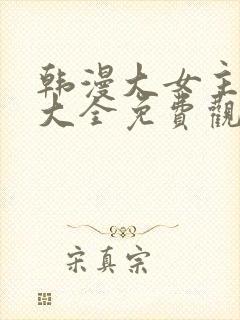 韩漫大女主
大全免費觀
宋真宗